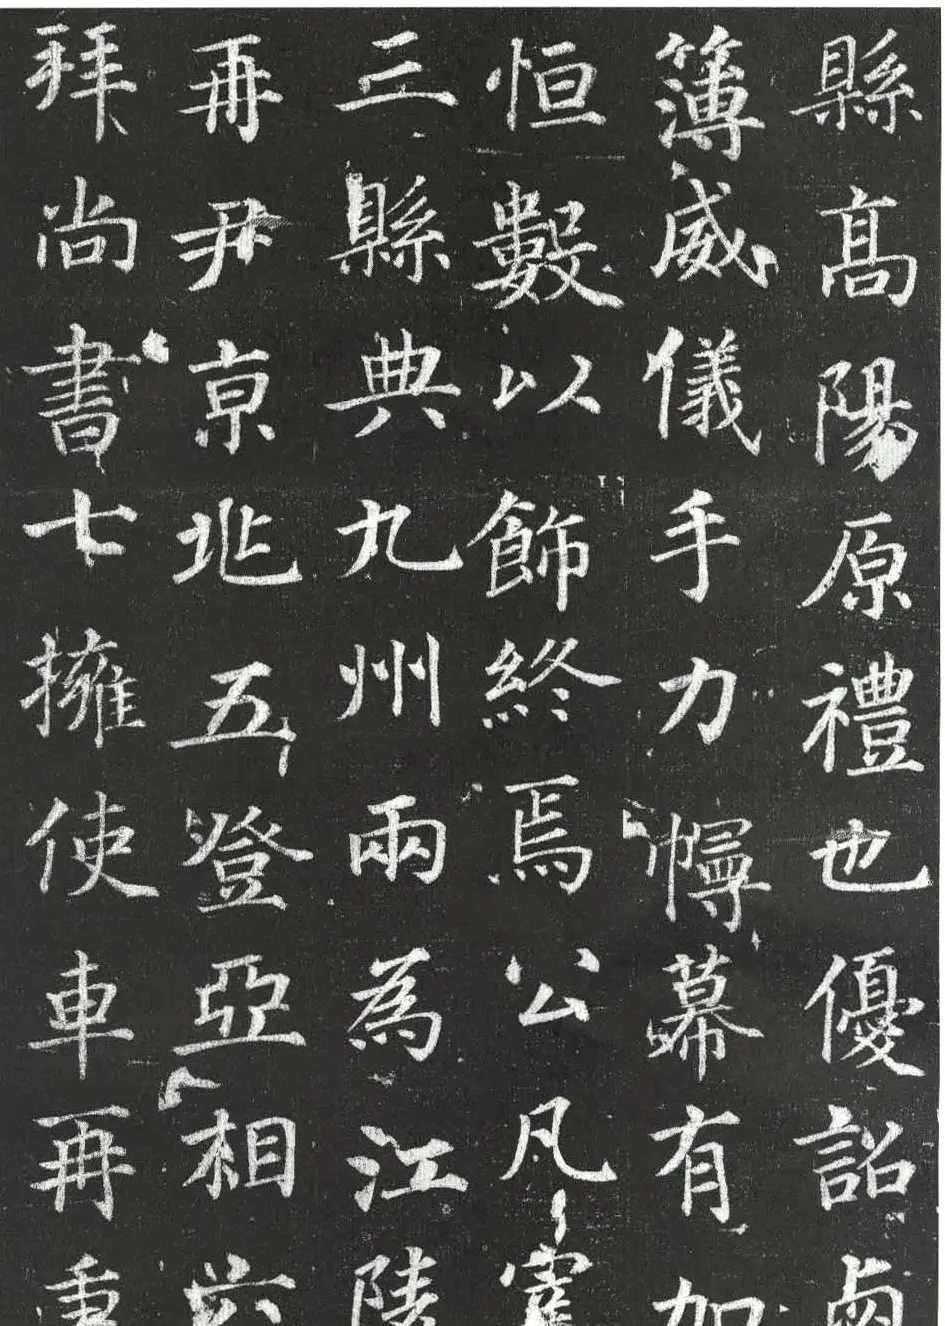 縣高陽原禮也優詔鹵
簿威儀手力幔幕有加
恒數以飾終焉公凡宰
三縣典九州兩為江陵
再尹京兆五登亞相六
拜尚書七擁使車再重